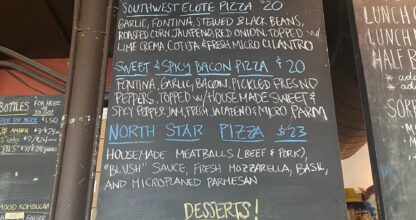 SOUTHWEST ELOTE PIZZA $20
GARLIC, FONTINA, STEWED BLACK BEANS,
ROASTED CORN, JALAPENO, RED ONION. TOPPED W/
LIME CREMA, COTIJA & FRESH MICRO CILANTRO
SWEET & SPICY BACON PIZZA $20
FONTINA, GARLIC, BACON, PICKLED FRESNO
PEPPERS. TOPPED W/ HOUSEMADE SWEET &
SPICY PEPPER JAM, FRESH JALAPENOS & MICRO PARM
NORTH STAR PIZZA $23
HOUSEMADE MEATBALLS (BEEF & PORK),
"BLUSH" SAUCE, FRESH MOZZARELLA, BASIL,
AND MICROPLANED PARMESAN
DESSERTS!
BOTTLES
FOR HERE
$1.50
AMBER
MOOD KOMBUCHA
LUNCH
LUNCH
HALF
HAM